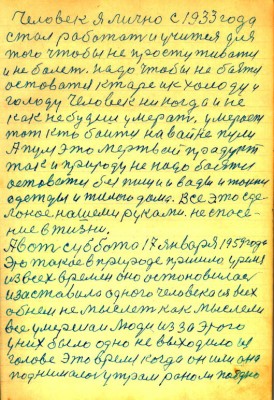 Человек я лично с 1933 года
стал работат и учится для
того чтобы не простуживати
и не болет. надо чтобы не баяти
остоватя к таре и к холоду и
голоду Человек никогда и не
как не будим умерат. умерает
тот кто баити на вайне пули
А пул это мертвый прадукт
так и природу не надо баятся
остоватя без пищи и вады и
одежды и жилого дома. Все это сде
лоное нашеми руками. не спосе-
ние в жизни.
А вот суббота 17 января 1959 года
Это такое в природе пришло уремя
из всех времен оно остоновилас
и заставило одного человека и всех
обнем не мыслет как мыслели
все умершаи люди из за этого
у них было одно не выходило из
голове это время когда он или она
поднималас утрам рано ли поздно